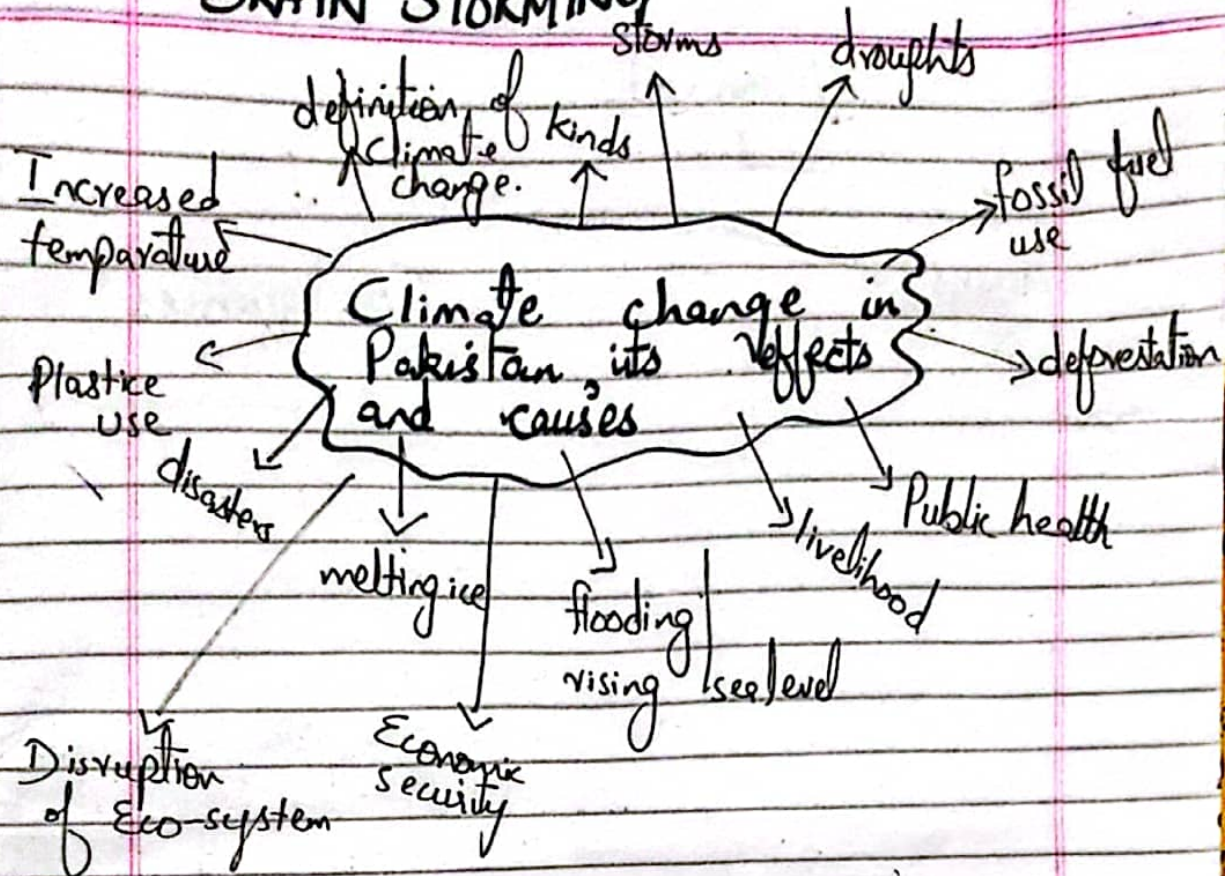 BRAIN STORMING
storms
droughts
definition of
climate
change.
kinds
fossil fuel
use
Increased
temparature
Climate change in
Pakistan, its effects
and causes
deforestation
Plastice
use
disasters
Public health
livelihood
melting ice
flooding
rising sea level
Economic
security
Disruption
of Eco-system